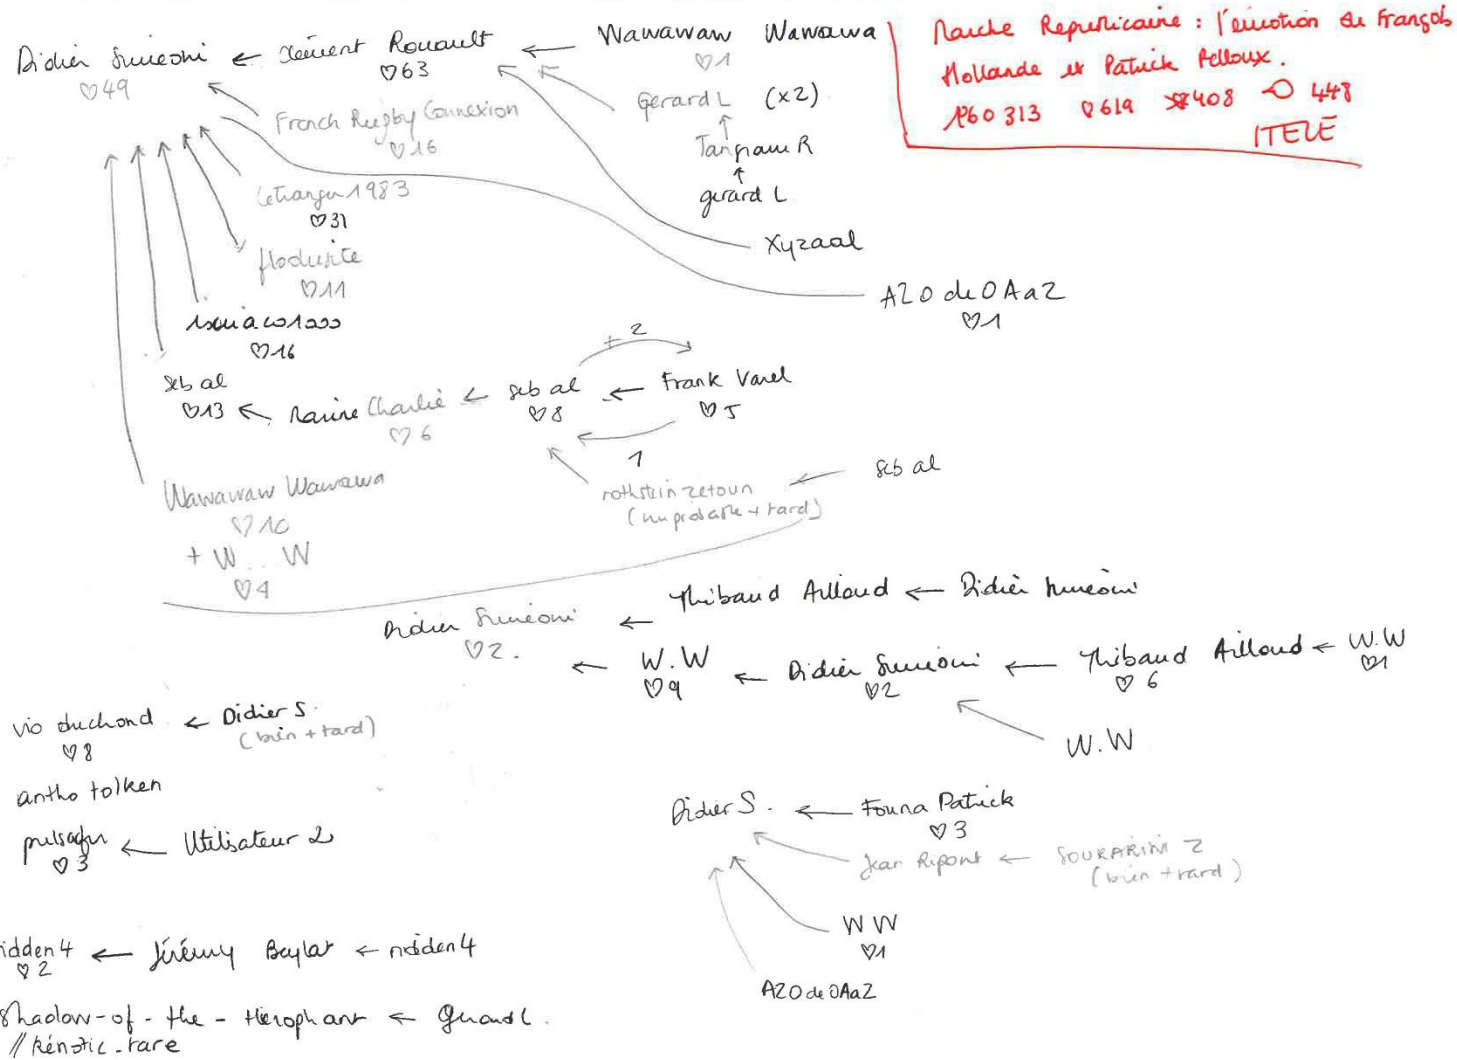 Didier Siméoni ← Clément Rouault ← Wawawaw Wawawa
♡49 ♡63 ♡1
Marche Republicaine : l'émotion de François
Hollande et Patrick Pelloux.
160 313 ♡619 408 448
ITELE
French Rugby Connexion
♡16
Gerard L (x2)
↑
Tangram R
↑
gerard L
Letranger1983
♡31
Xyzaal
flodusite
♡11
AZO de OAaZ
♡1
♡16
+ 2
seb al
♡13
← Marine Charlie ← seb al ← Frank Varel
♡6 ♡8 ♡5
1
rothstein zetoun ← seb al
(un probable + tard)
Wawawaw Wawawa
♡10
+ W...W
♡4
Didier Siméoni ← Thibaud Ailloud ← Didier Siméoni
♡2.
← W.W ← Didier Siméoni ← Thibaud Ailloud ← W.W
♡9 ♡2 ♡6 ♡1
W.W
vio duchond ← Didier S.
♡8 (bien + tard)
antho tolken
← Utilisateur 2
♡3
Didier S. ← Founa Patrick
♡3
Jean Ripont ← SOUKARINI Z
(bien + tard)
W W
♡1
AZO de OAaZ
idden4 ← Jérémy Beylat ← ridden4
♡2
Shadow-of-the-Hierophant ← Gerard L.
// kénotic-tare